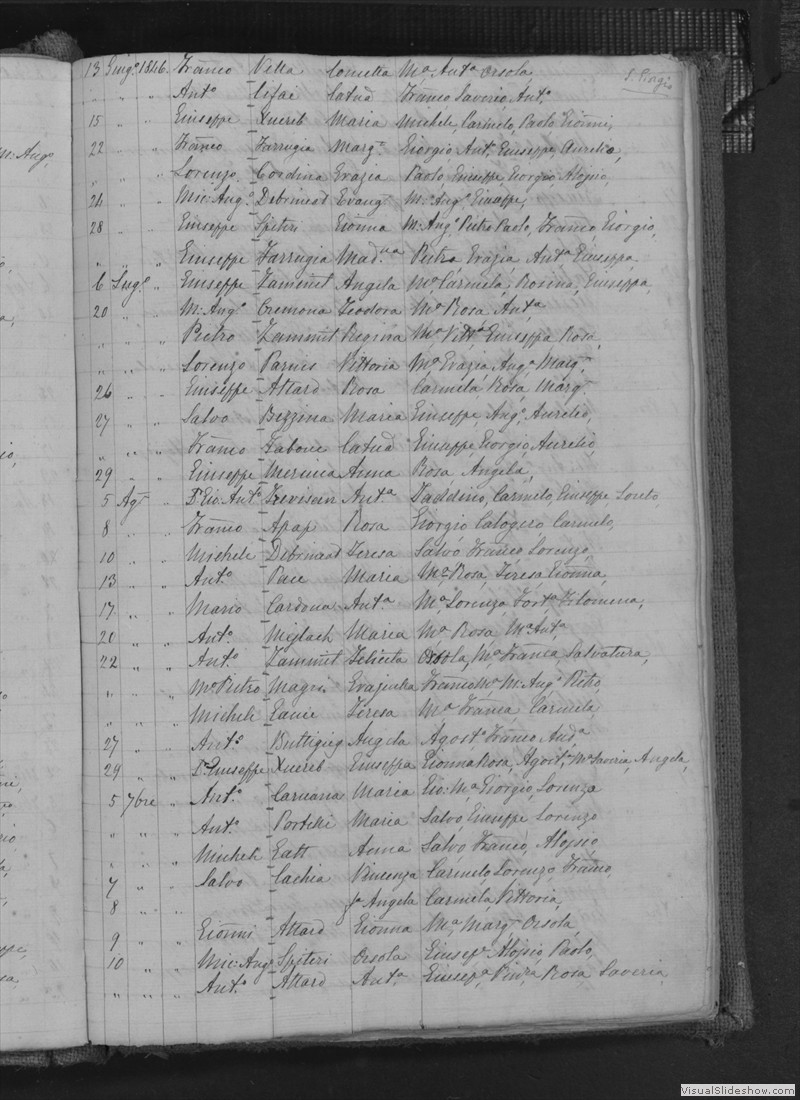 13 Giug.º 1846. Franco Vella Cometta Mª Antª Orsola
S. Giorgio
" " " Ant.º Cifai Catnª Franco Saverio, Ant.º
15 " " Giuseppe Xuereb Maria Michele, Carmelo, Paolo Gionni,
22 " " Franco Farrugia Marg.ª Giorgio Ant.º Giuseppe, Aurelio,
" " " Lorenzo Cordina Grazia Paolo, Giuseppe, Giorgio, Aloisio,
24 " " Mic: Ang.º Debrincad Evang.ª M: Ang.º Giuseppe,
28 " " Giuseppe Spiteri Gionna M: Ang.º Pietro Paolo, Franco, Giorgio,
" " " Giuseppe Farrugia Mad.na Pietra Grazia, Antª Giuseppa,
6 Lug.º " Giuseppe Zammit Angela Mª Carmela, Rosina, Giuseppa,
20 " " M: Ang.º Cremona Teodora Mª Rosa, Antª
" " " Pietro Zammit Regina Mª Vittª Giuseppa Rosa,
" " " Lorenzo Parnis Vittoria Mª Grazia, Angª Marg.ª
26 " " Giuseppe Attard Rosa Carmela, Rosa, Marg.ª
27 " " Salvo Bezzina Maria Giuseppe, Ang.º, Aurelio,
" " " Franco Fabone Catnª Giuseppe, Giorgio, Aurelio,
29 " " Giuseppe Anna Rosa, Angela,
5 Ag.to " Dr Gio: Ant.º Trevisan Antª Taddeino, Carmelo, Giuseppe Loreto,
8 " " Franco Apap Rosa Giorgio Calogero Carmelo,
10 " " Michele Debrincad Teresa Salvo Franco Lorenzo,
13 " " Ant.º Pace Maria Mª Rosa, Teresa Gionna,
17 " " Mario Cardona Antª Mª Lorenza Fortª Filomena,
20 " " Ant.º Maria Mª Rosa, Mª Antª
22 " " Ant.º Zammit Felicita Orsola, Mª Franca, Salvatura,
" " " Mº Pietro Magri Graziulla Franco Mª M: Ang.º Pietro,
" " " Michele Gauci Teresa Mª Franca, Carmela,
27 " " Ant.º Buttigieg Angela Agost.º Franco And.ª
29 " " Dr Giuseppe Xuereb Giuseppa Gionna Rosa, Agostª Mª Saveria, Angela,
5 7bre " Ant.º Caruana Maria Gio: Mª Giorgio, Lorenza
" " " Ant.º Portelli Maria Salvo, Giuseppe Lorenzo
" " " Michele Gatt Anna Salvo, Franco, Aloisio,
7 " " Salvo Cachia Vincenza Carmelo Lorenzo Franco,
8 " " Angela Carmela Vittoria,
9 " " Gionni Attard Gionna Mª Marg.ª Orsola,
10 " " Mic: Ang.º Spiteri Orsola Giusep.e Aloisio, Paolo,
" " " Ant.º Attard Antª Giusep.ª Pietra Rosa, Saveria,
VisualSlideshow.com